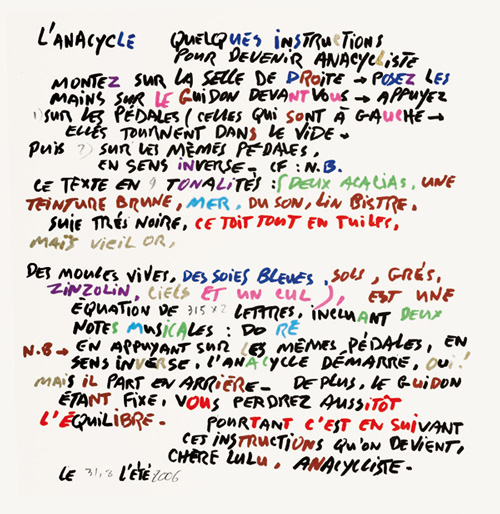 L'ANACYCLE QUELQUES INSTRUCTIONS
POUR DEVENIR ANACYCLISTE
MONTEZ SUR LA SELLE DE DROITE → POSEZ LES
MAINS SUR LE GUIDON DEVANT VOUS → APPUYEZ
1) SUR LES PÉDALES (CELLES QUI SONT À GAUCHE →
ELLES TOURNENT DANS LE VIDE -
PUIS 2) SUR LES MÊMES PÉDALES,
EN SENS INVERSE - CF : N.B.
CE TEXTE EN 9 TONALITÉS : ( DEUX ACACIAS, UNE
TEINTURE BRUNE, MER, DU SON, LIN BISTRE,
SUIE TRÉS NOIRE, CE TOIT TOUT EN TUILES,
MAÏS VIEIL OR,
DES MOULES VIVES, DES SOIES BLEUES, SOLS, GRÉS,
ZINZOLIN, CIELS ET UN CUL ), EST UNE
ÉQUATION DE 315 x 2 LETTRES, INCLUANT DEUX
NOTES MUSICALES : DO RÉ
N.B → EN APPUYANT SUR LES MÊMES PÉDALES, EN
SENS INVERSE, L'ANACYCLE DÉMARRE, OUI !
MAIS IL PART EN ARRIÈRE - DE PLUS, LE GUIDON
ÉTANT FIXE, VOUS PERDREZ AUSSITÔT
L'ÉQUILIBRE - POURTANT C'EST EN SUIVANT
CES INSTRUCTIONS QU'ON DEVIENT,
CHÈRE LULU, ANACYCLISTE -
LE 31,8 L'ÉTÉ 2006